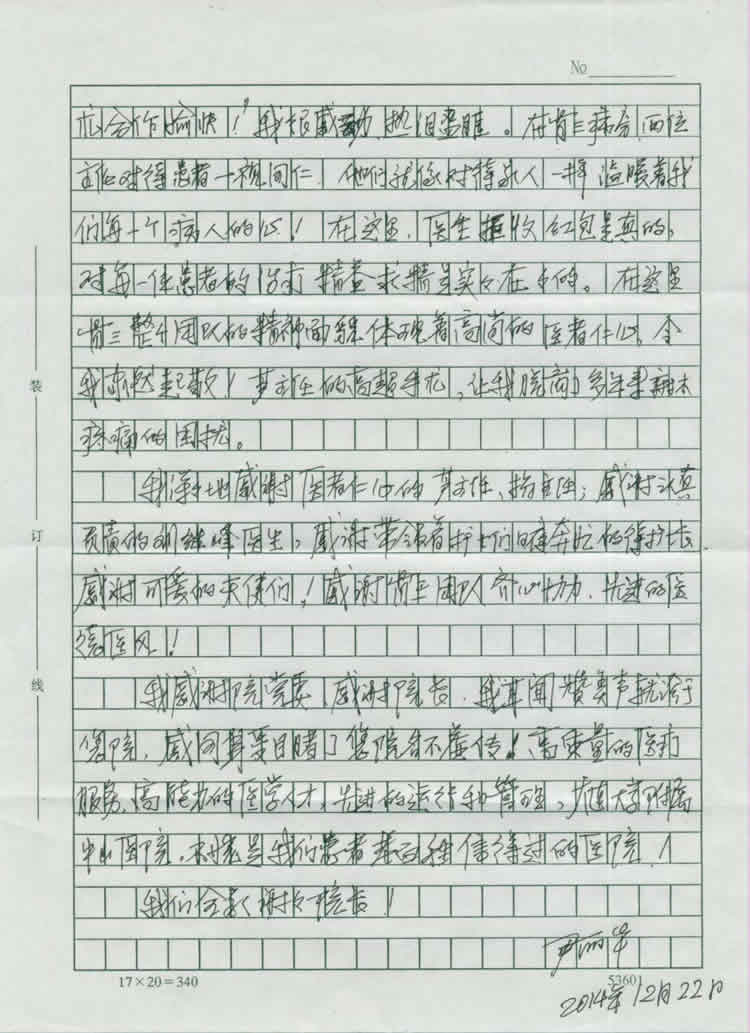 No
术合作愉快！"我很感动,热泪盈眶。在骨三病务,两位
主任对待患者一视同仁,他们就像对待亲人一样温暖着我
们每一个病人的心！在这里,医生拒收红包是真的,
对每一位患者的治疗精益求精是实々在々的。在这里
骨三整个团队的精神面貌体现着高尚的医者仁心。令
我肃然起敬！主任的高超手术,让我脱离了多年来
疼痛的困扰。
我深々地感谢医者仁心的主任、主任；感谢认真
负责的胡继峰医生。感谢带领着护士们日夜奔忙的护长
感谢可爱的天使们！感谢骨三团队齐心协力、先进的医
德医风！
我感谢院党委,感谢院长,我耳闻赞美声就流于
您院,感同身受目睹了您院名不虚传！高质量的医疗
服务,高能力的医学人才,先进的运行和管理,大连大学附属
中山医院,才是我们患者信得过的医院！
我们全家谢谢院长！
装
订
线
17×20=340
53601
2014年12月22日